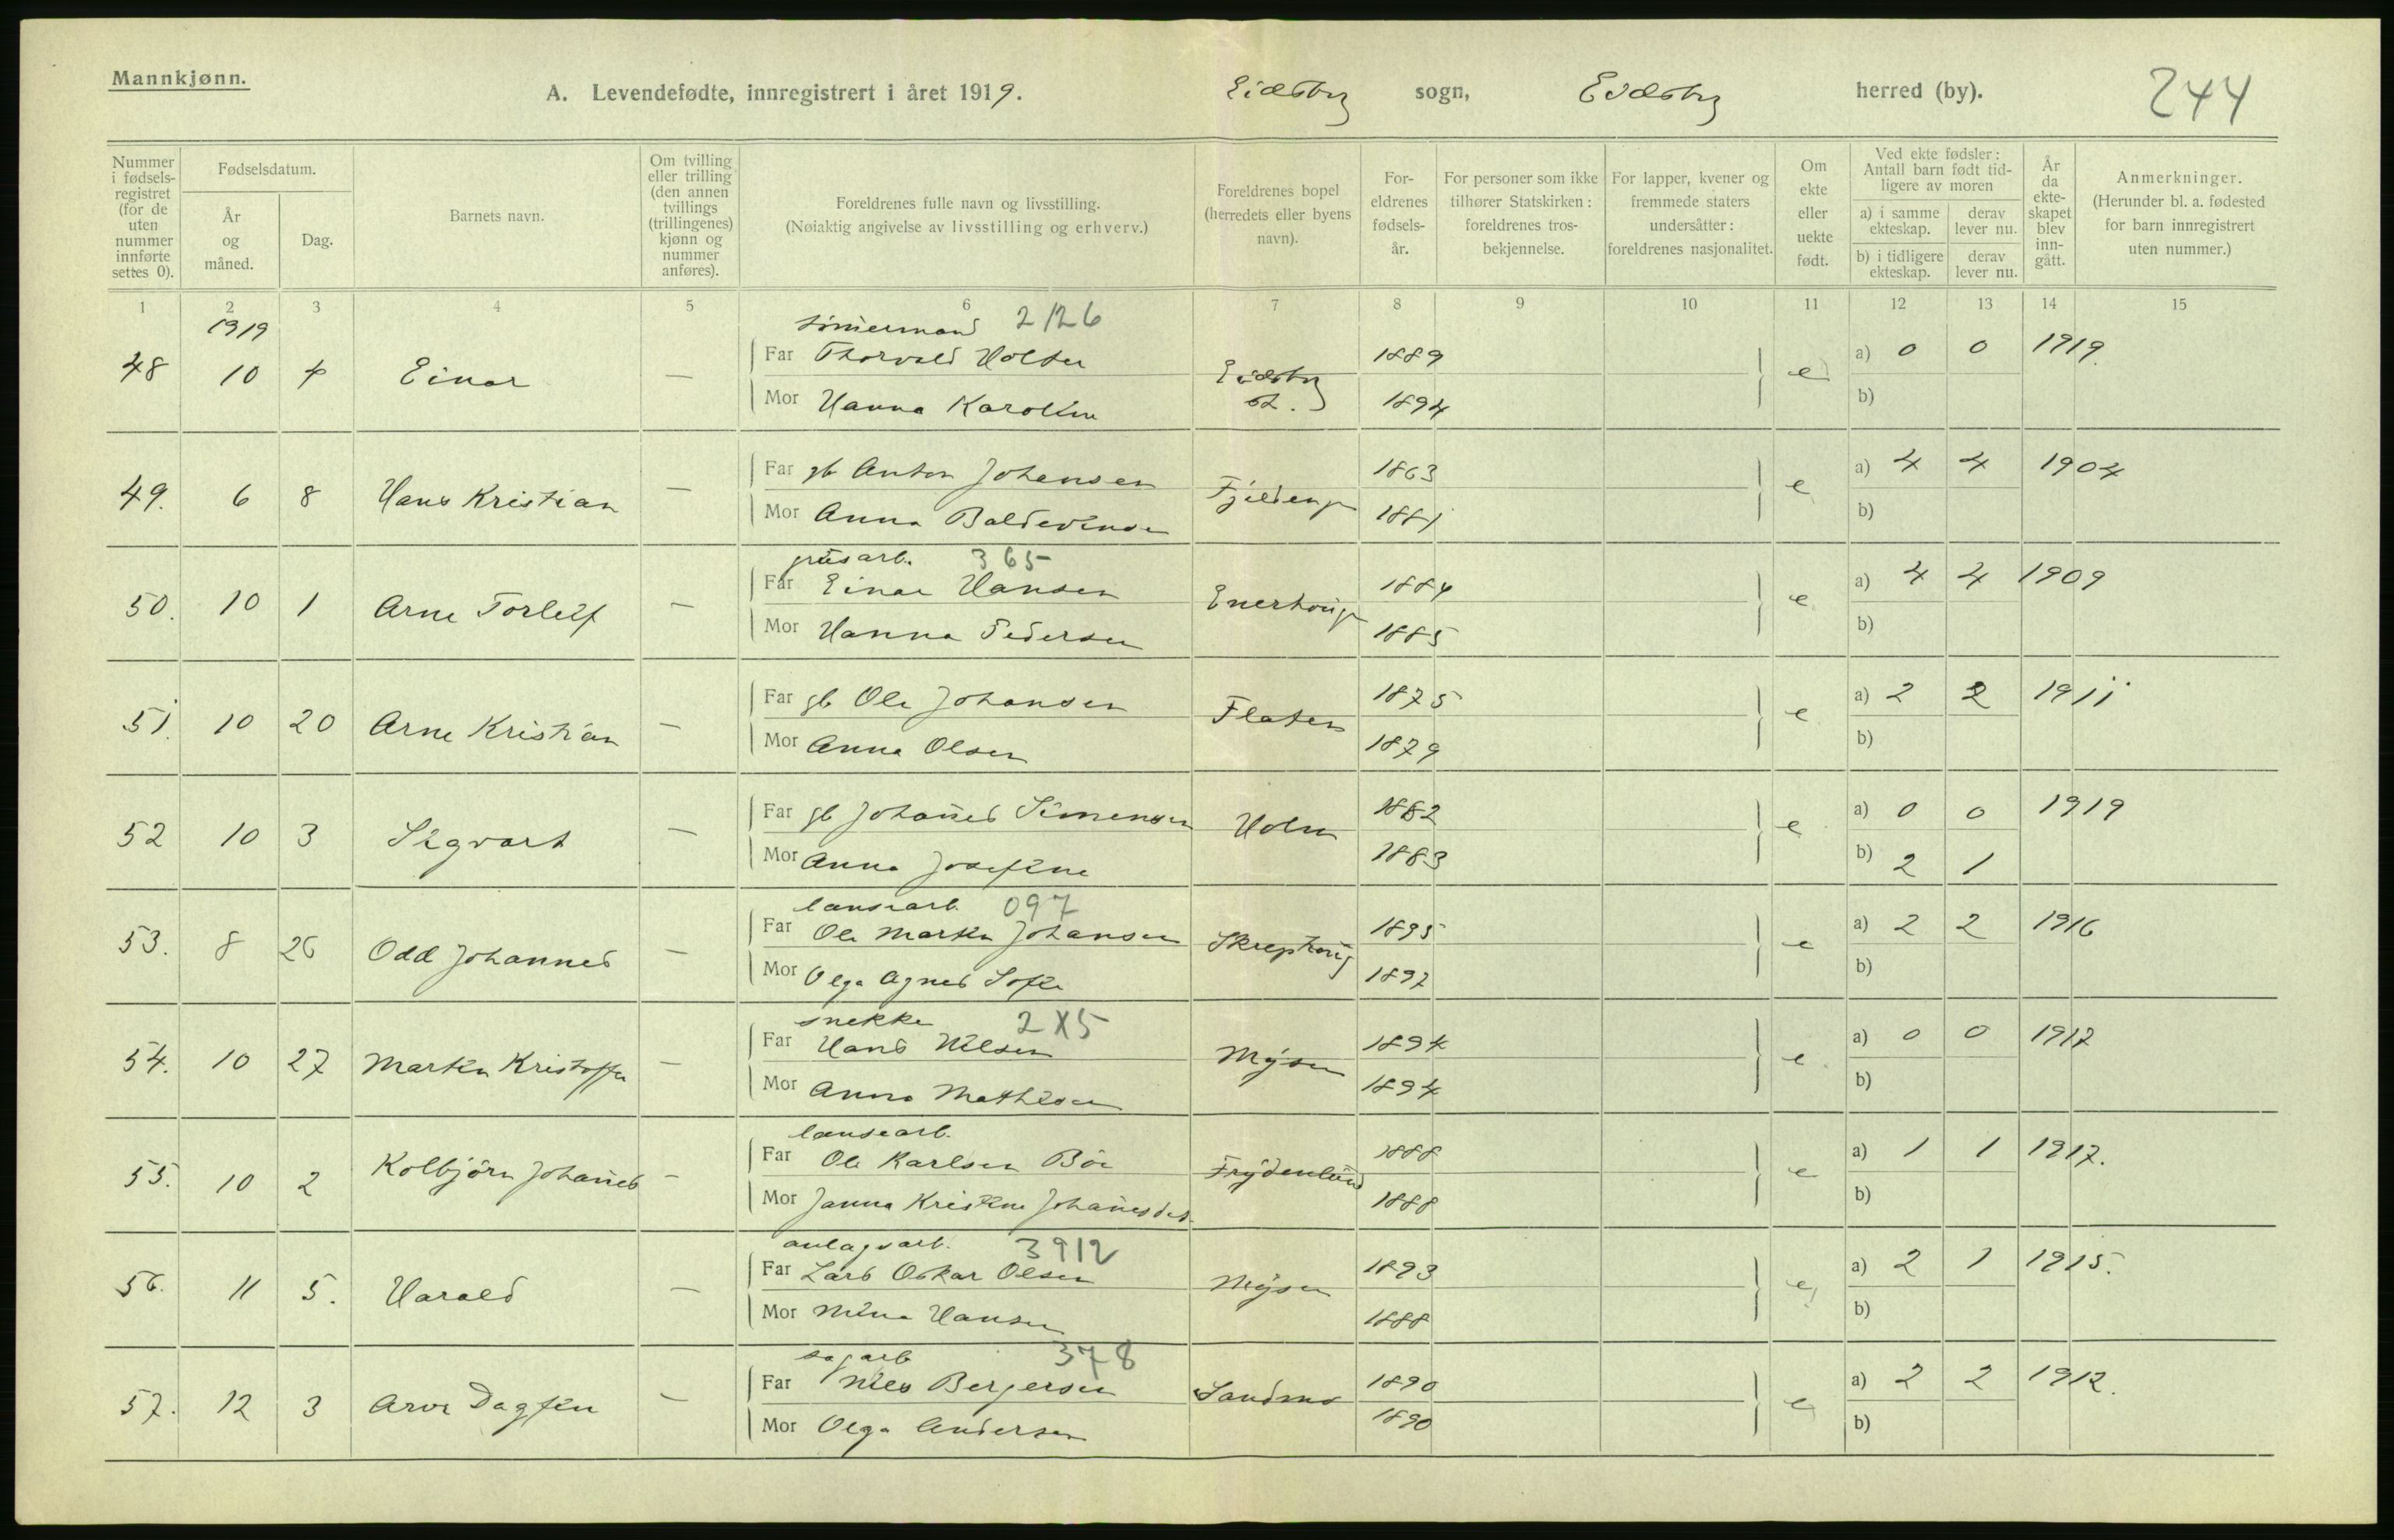 Mannkjønn.
A. Levendefødte, innregistrert i året 1919. Eidsberg sogn, Eidsberg herred (by). 244
Nummer i fødsels-registret (for de uten nummer innførte settes 0).
Fødselsdatum.
År og måned.
Dag.
Barnets navn.
Om tvilling eller trilling (den annen tvillings (trillingenes) kjønn og nummer anføres).
Foreldrenes fulle navn og livsstilling.
(Nøiaktig angivelse av livsstilling og erhverv.)
Foreldrenes bopel (herredets eller byens navn).
For-eldrenes fødsels-år.
For personer som ikke tilhører Statskirken: foreldrenes tros-bekjennelse.
For lapper, kvener og fremmede staters undersåtter: foreldrenes nasjonalitet.
Om ekte eller uekte født.
Ved ekte fødsler: Antall barn født tid-ligere av moren
a) i samme ekteskap. derav lever nu.
b) i tidligere ekteskap. derav lever nu.
År da ekte-skapet blev inn-gått.
Anmerkninger.
(Herunder bl. a. fødested for barn innregistrert uten nummer.)
1 2 3 4 5 6 7 8 9 10 11 12 13 14 15
1919 2126
48 10 4 Einar — Far Thorvald Holter Eidsberg st. 1889 e a) 0 0 1919
Mor Hanna Karoline 1894 b)
49. 6 8 Hans Kristian — Far gb Anton Johansen 1863 e a) 4 4 1904
Mor Anna Baldevinsen 1881 b)
365
50. 10 1 Arne Torleif — Far Einar Hansen Enerhaugen 1884 e a) 4 4 1909
Mor Hanna Pedersen 1885 b)
51. 10 20 Arne Kristian — Far gb Ole Johansen Flaten 1875 e a) 2 2 1911
Mor Anna Olsen 1879 b)
52 10 3 Sigvart — Far gb Johannes Simensen Holm 1882 e a) 0 0 1919
Mor Anna Josefine 1883 b) 2 1
lensearb. 097
53. 8 26 Odd Johannes — Far Ole Martin Johansen Skrephaug 1895 e a) 2 2 1916
Mor Olga Agnes Sofie 1897 b)
snekker 2X5
54. 10 27 Martin Kristoffer — Far Hans Nilsen Mysen 1894 e a) 0 0 1917
Mor Anna Mathisen 1894 b)
lensearb.
55. 10 2 Kolbjørn Johannes — Far Ole Karlsen Böe Frydenlund 1888 e a) 1 1 1917.
Mor Janna Kristine Johannesdat. 1888 b)
anlagsarb. 3912
56. 11 5. Harald — Far Lars Oskar Olsen Mysen 1893 e a) 2 1 1915.
Mor Mina Hansen 1888 b)
sagarb 378
57. 12 3 Arve Dagfin — Far Nils Bergersen Sandmo 1890 e a) 2 2 1912.
Mor Olga Andersen 1890 b)